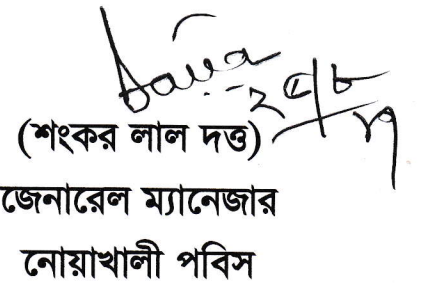 (শংকর লাল দত্ত)
জেনারেল ম্যানেজার
নোয়াখালী পবিস